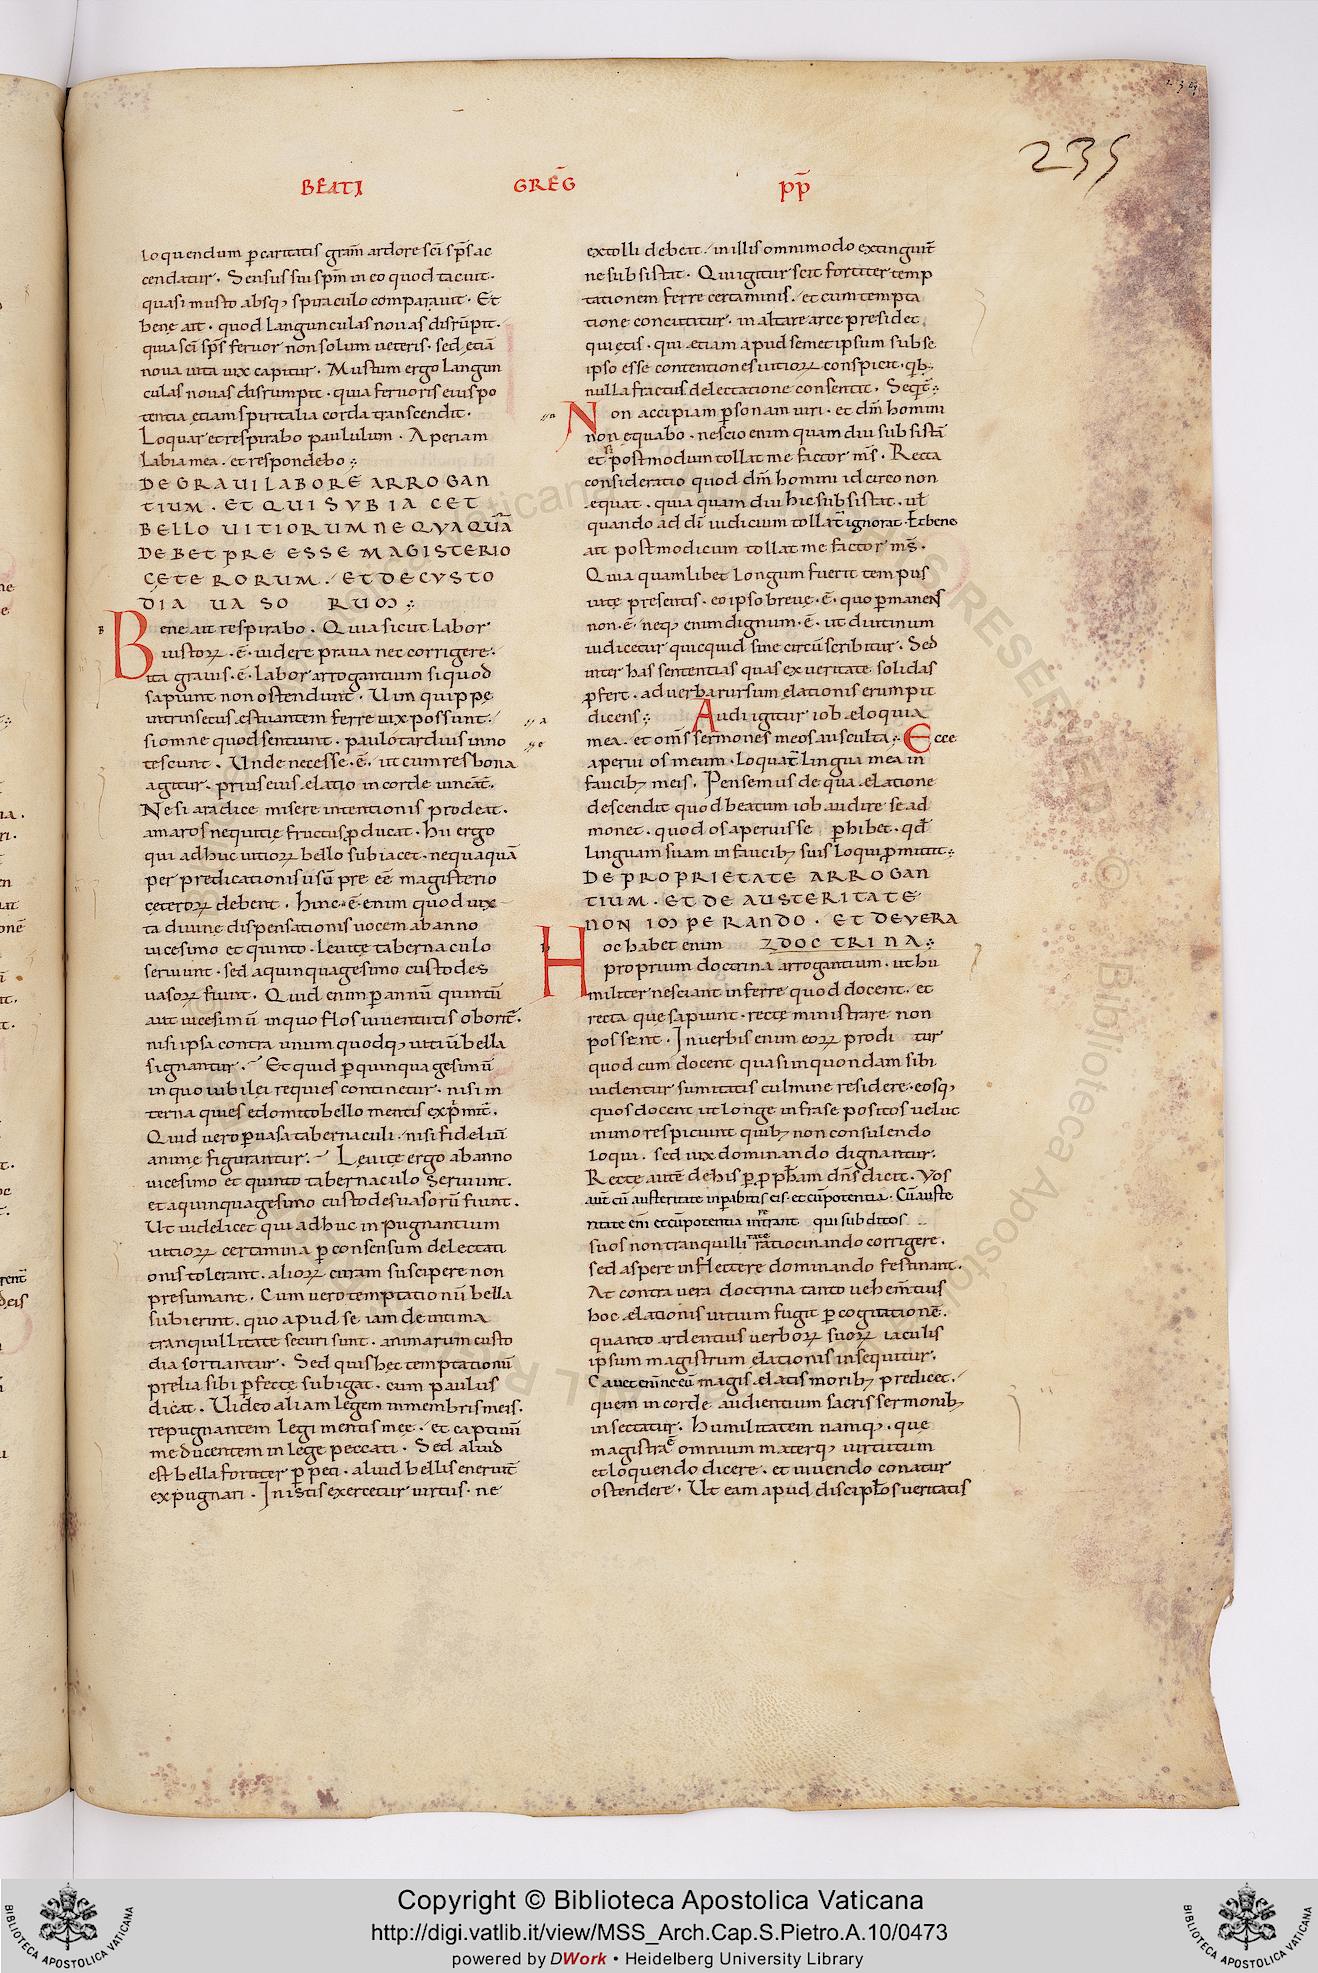 BEATI GREḠ PP̄
235
loquendum p caritatis gram̄ ardore sci sp̄s ac
cendatur. Sensus sui sp̄m in eo quod tacuit.
quasi musto absq; spiraculo comparauit. Et
bene ait. quod langunculas nouas disrūpit.
quia sci sp̄s feruor non solum ueteris. sed etiā
noua uita uix capitur. Mustum ergo langun
culas nouas disrumpit. quia feruoris eius po
tentia etiam spiritalia corda transcendit.
Loquar et respirabo paululum. Aperiam
labia mea. et respondebo:
DE GRAVI LABORE ARROGAN
TIUM. ET QUI SUBIACET
BELLO UITIORUM NEQUAQUĀ
DEBET PREESSE MAGISTERIO
CĘTERORUM. ET DE CUSTO
DIA UASORUM:
Bene ait respirabo. Quia sicut labor
iustoꝝ .ē. uidere praua nec corrigere.
ita grauis .ē. labor arrogantium si quod
sapiunt non ostendunt. Uim quippe
intrinsecus ęstuantem ferre uix possunt.
si omne quod sentiunt. paulo tardius inno
tescunt. Unde necesse .ē. ut cum res bona
agitur. prius eius elatio in corde uincat̄.
Ne si a radice misere intentionis prodeat.
amaros nequitię fructus ꝓducat. Hii ergo
qui adhuc uitioꝝ bello subiacet. nequaquā
per predicationis usū pre eē magisterio
cęteroꝝ debent. Hinc ē enim quod iux
ta diuine dispensationis uocem ab anno
uicesimo et quinto. Leuitę tabernaculo
seruiunt. sed a quinquagesimo custodes
uasoꝝ fiunt. Quid enim ꝑ annū quintū
aut uicesimū in quo flos iuuentutis oborit̄.
nisi ipsa contra unum quodq; uitiū bella
signantur. Et quid ꝑ quinquagesimū
in quo iubilei requies continetur. nisi in
terna quies edomito bello mentis exprimit̄.
Quid uero ꝑ uasa tabernaculi. nisi fideliū
animę figurantur. Leuitę ergo ab anno
uicesimo et quinto tabernaculo seruiunt.
et a quinquagesimo custodes uasorū fiunt.
Ut uidelicet qui adhuc inpugnantium
uitioꝝ certamina ꝑ consensum delectati
onis tolerant. alioꝝ curam suscipere non
presumant. Cum uero temptationū bella
subierint. quo apud se iam de intima
tranquillitate securi sunt. animarum custo
dia sortiantur. Sed quis hęc temptationū
prelia sibi ꝑfecte subigat. cum paulus
dicat. Uideo aliam legem in membris meis.
repugnantem legi mentis meę. et captiuū
me ducentem in lege peccati. Sed aliud
est bella fortiter ꝑpeti. aliud bellis eneruit̄
expugnari. In istis exercetur uirtus. ne
extolli debeat. in illis omnimodo extinguit̄
ne subsistat. Qui igitur scit fortiter temp
tationem ferre certaminis. et cum tempta
tione concutitur. in altare arce presidet
quietis. qui etiam apud semet ipsum sub se
ipso esse contentiones uitioꝝ conspicit. qb;
nulla fractus delectatione consentit. Seqt̄:
Non accipiam ꝑsonam uiri. et dm̄ homini
non ęquabo. nescio enim quam diu subsistā
et si post modum tollat me factor ms̄. Recta
consideratio quod dm̄ homini idcirco non
ęquat. quia quam diu hic subsistat. ut
quando ad dī iudicium tollat̄ ignorat. Et bene
ait post modicum tollat me factor ms̄.
Quia quamlibet longum fuerit tempus
uitę presentis. eo ipso breue .ē. quo ꝑmanens
non .ē. neq; enim dignum .ē. ut diutinum
iudicetur quicquid fine circū scribitur. Sed
inter has sententias quas ex ueritate solidas
ꝓfert. ad uerba rursum elationis erumpit
dicens: Audi igitur iob eloquia
mea. et oms̄ sermones meos ausculta: Ecce
aperui os meum. Loquat̄ lingua mea in
faucibus meis. Pensemus de qua elatione
descendit quod beatum iob audire se ad
monet. quod os aperuisse ꝑhibet. qd
linguam suam in faucib; suis loqui ꝓmittit:
DE PROPRIETATE ARROGAN
TIUM. ET DE AUSTERITATE
NON IMPERANDO. ET DE VERA
DOCTRINA:
Hoc habet enim
proprium doctrina arrogantium. ut hu
militer nesciant inferre quod docent. et
recta quę sapiunt. rectę ministrare non
possent. In uerbis enim eoꝝ proditur
quod cum docent quasi in quondam sibi
uidentur sumitatis culmine residere. eosq;
quos docent ut longe infra se positos uelut
in imo respiciunt quib; non consulendo
loqui. sed uix dominando dignantur.
Recte autē de his ꝑ ꝓpham dn̄s dicit. Vos
aut̄ cū austeritate inꝑabitis eis. et cū potentia. Cū auste
ritate eni et cū potentia inꝑant qui subditos
suos non tranquillitate ratiocinando corrigere.
sed aspere inflectere dominando festinant.
At contra uera doctrina tanto uehem̄tius
hoc elationis uitium fugit ꝑ cogitationē.
quanto ardentius uerboꝝ suoꝝ iaculis
ipsum magistrum elationis insequitur.
Cauet enī ne eū magis elatis morib; predicet.
quem in corde audientium sacris sermonib;
insectatur. Humilitatem namq; quę
magistra ē omnium materq; uirtutum
et loquendo dicere. et uiuendo conatur
ostendere. Ut eam apud discipulos ueritatis
Copyright © Biblioteca Apostolica Vaticana
http://digi.vatlib.it/view/MSS_Arch.Cap.S.Pietro.A.10/0473
powered by DWork • Heidelberg University Library
BIBLIOTECA APOSTOLICA VATICANA
BIBLIOTECA APOSTOLICA VATICANA